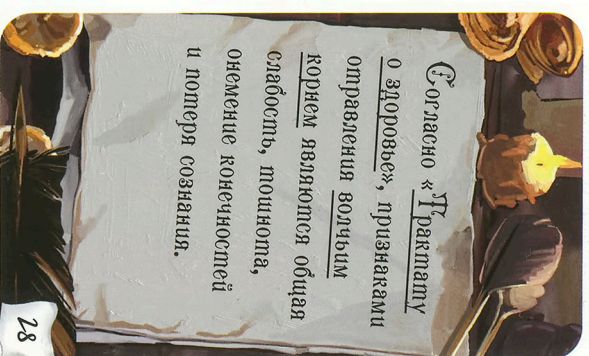 Согласно «Трактату
о здоровье», признаками
отравления волчьим
корнем являются общая
слабость, тошнота,
онемение конечностей
и потеря сознания.
28